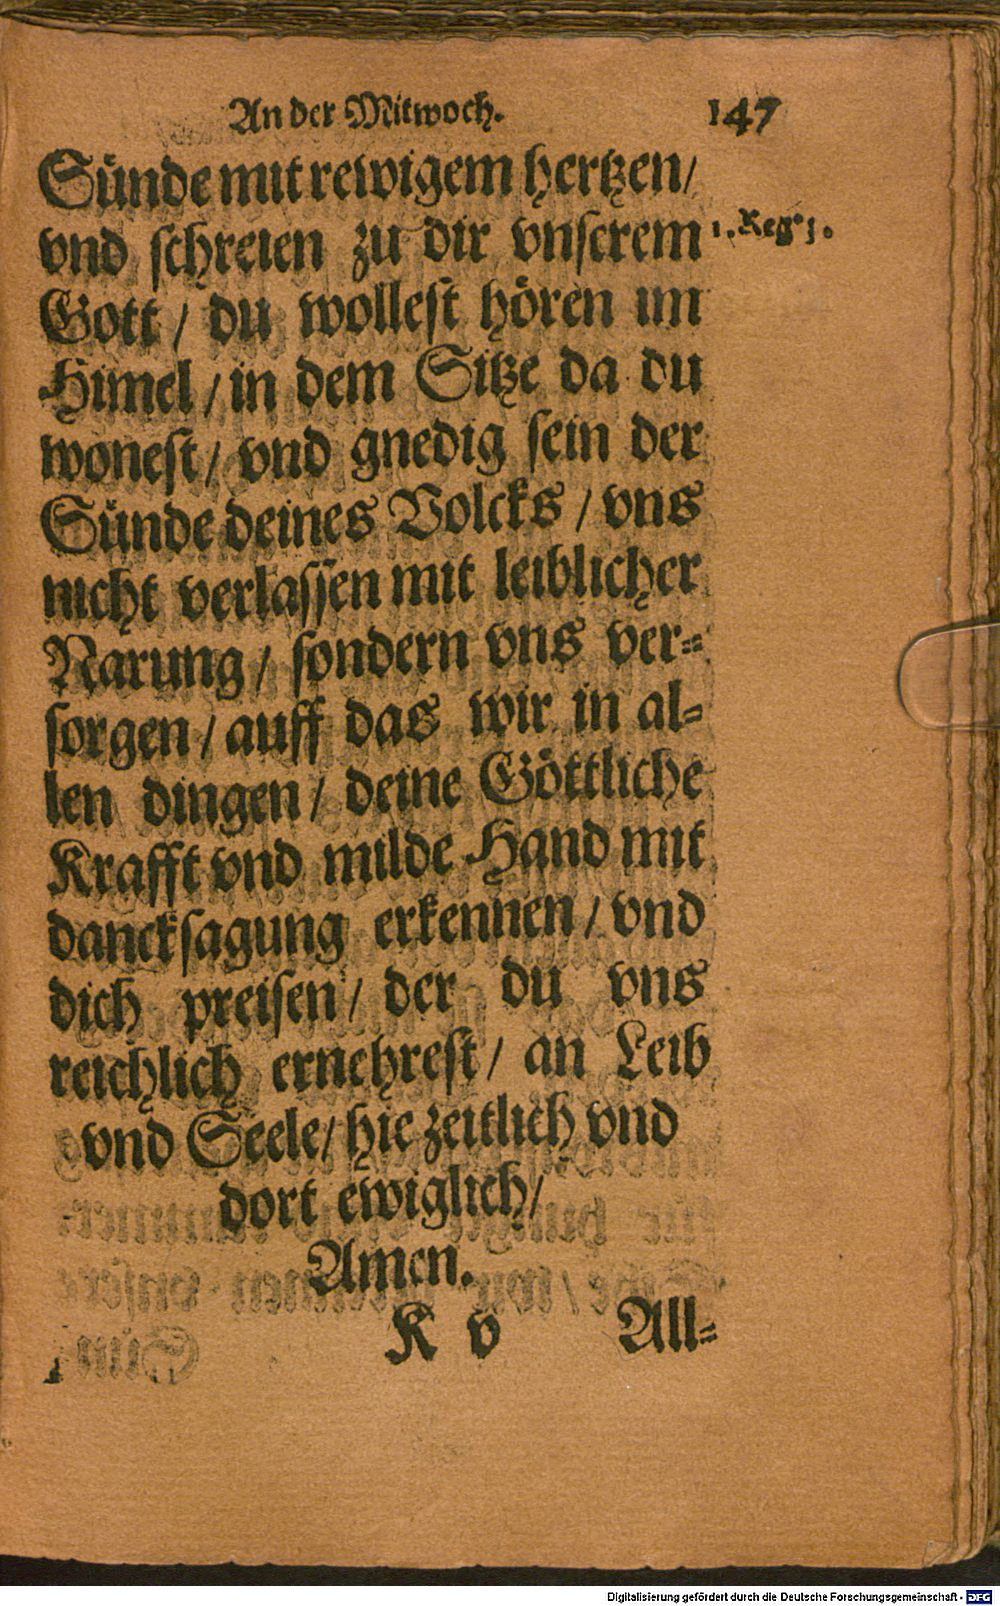 An der Mitwoch. 147
Sünde mit rewigem hertzen/
vnd schreien zu dir vnserem 1. Reg
Gott / du wollest hören im
Himel / in dem Sitze da du
wonest / vnd gnedig sein der
Sünde deines Volcks / vns
nicht verlassen mit leiblicher
Narung / sondern vns ver=
sorgen / auff das wir in al=
len dingen / deine Göttliche
Krafft vnd milde Hand mit
dancksagung erkennen / vnd
dich preisen / der du vns
reichlich ernehrest / an Leib
vnd Seele / hie zeitlich vnd
dort ewiglich /
Amen.
K v All=
Digitalisierung gefördert durch die Deutsche Forschungsgemeinschaft - DFG